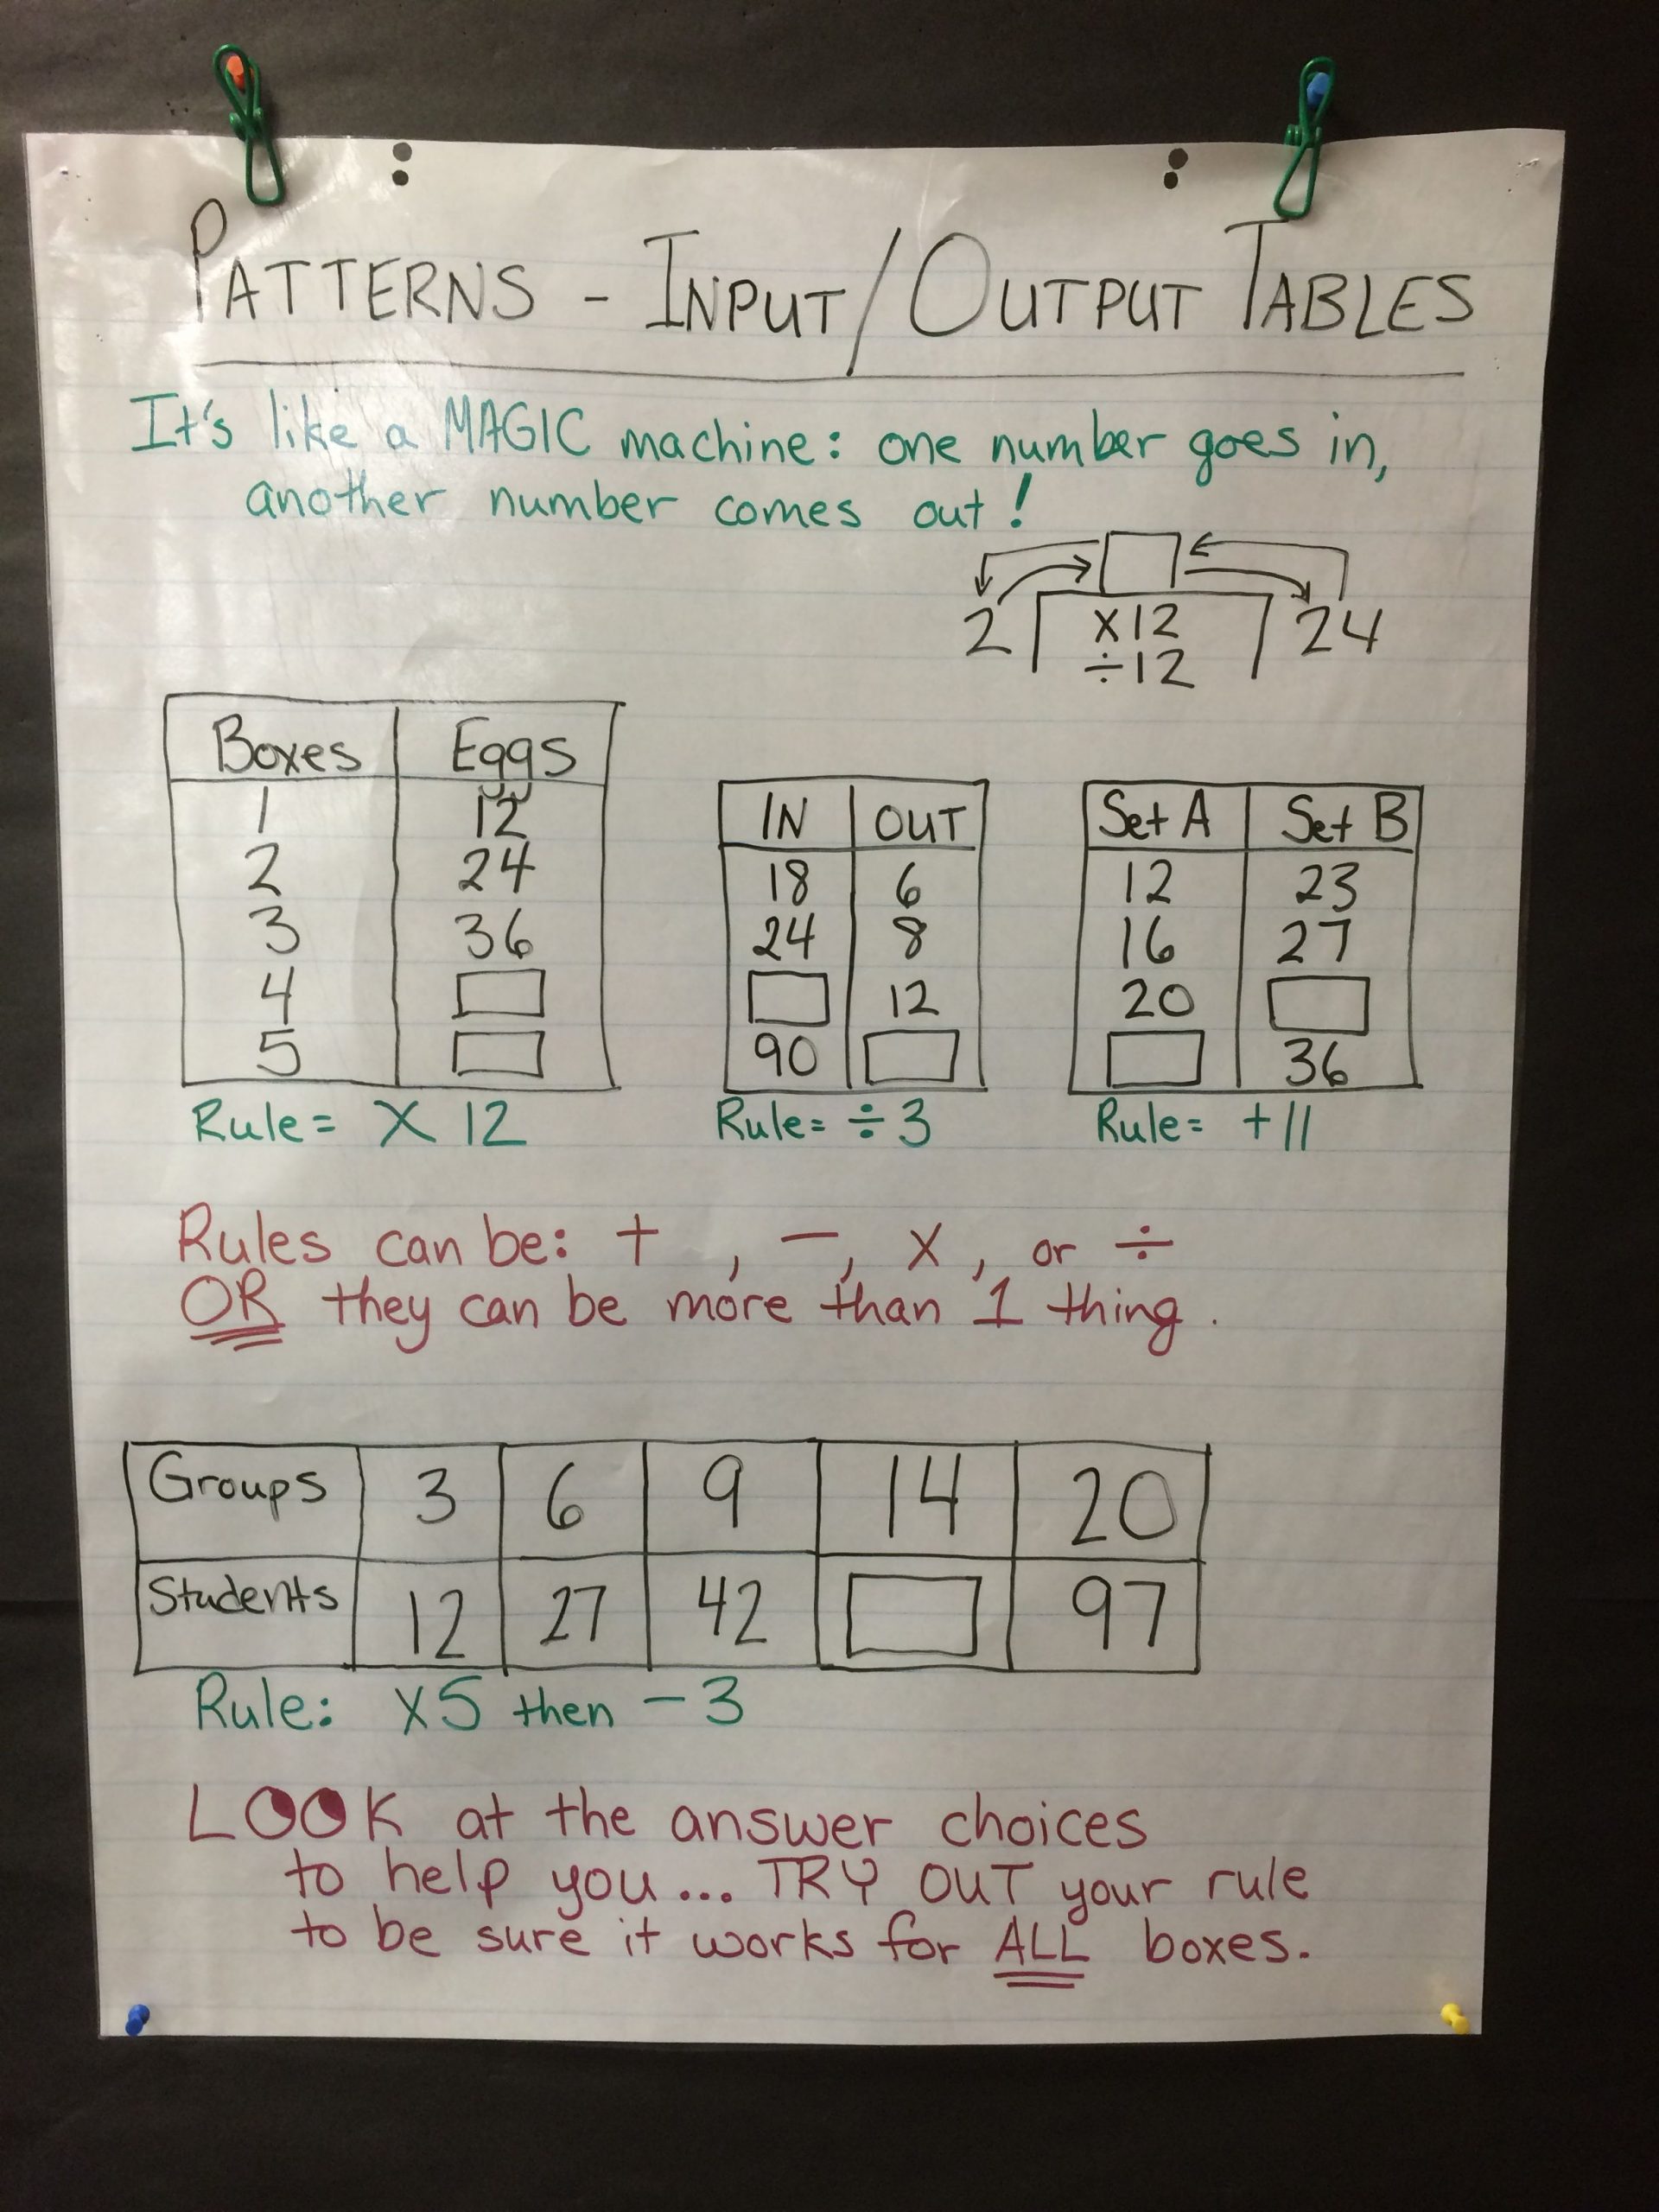 PATTERNS - INPUT/OUTPUT TABLES
It's like a MAGIC machine: one number goes in,
another number comes out!
2 x12 24
÷12
Boxes Eggs
1 12
2 24
3 36
4
5
Rule= X 12
IN OUT
18 6
24 8
12
90
Rule= ÷3
Set A Set B
12 23
16 27
20
36
Rule= +11
Rules can be: +, -, x, or ÷
OR they can be more than 1 thing.
Groups 3 6 9 14 20
Students 12 27 42 97
Rule: x5 then -3
LOOK at the answer choices
to help you... TRY OUT your rule
to be sure it works for ALL boxes.